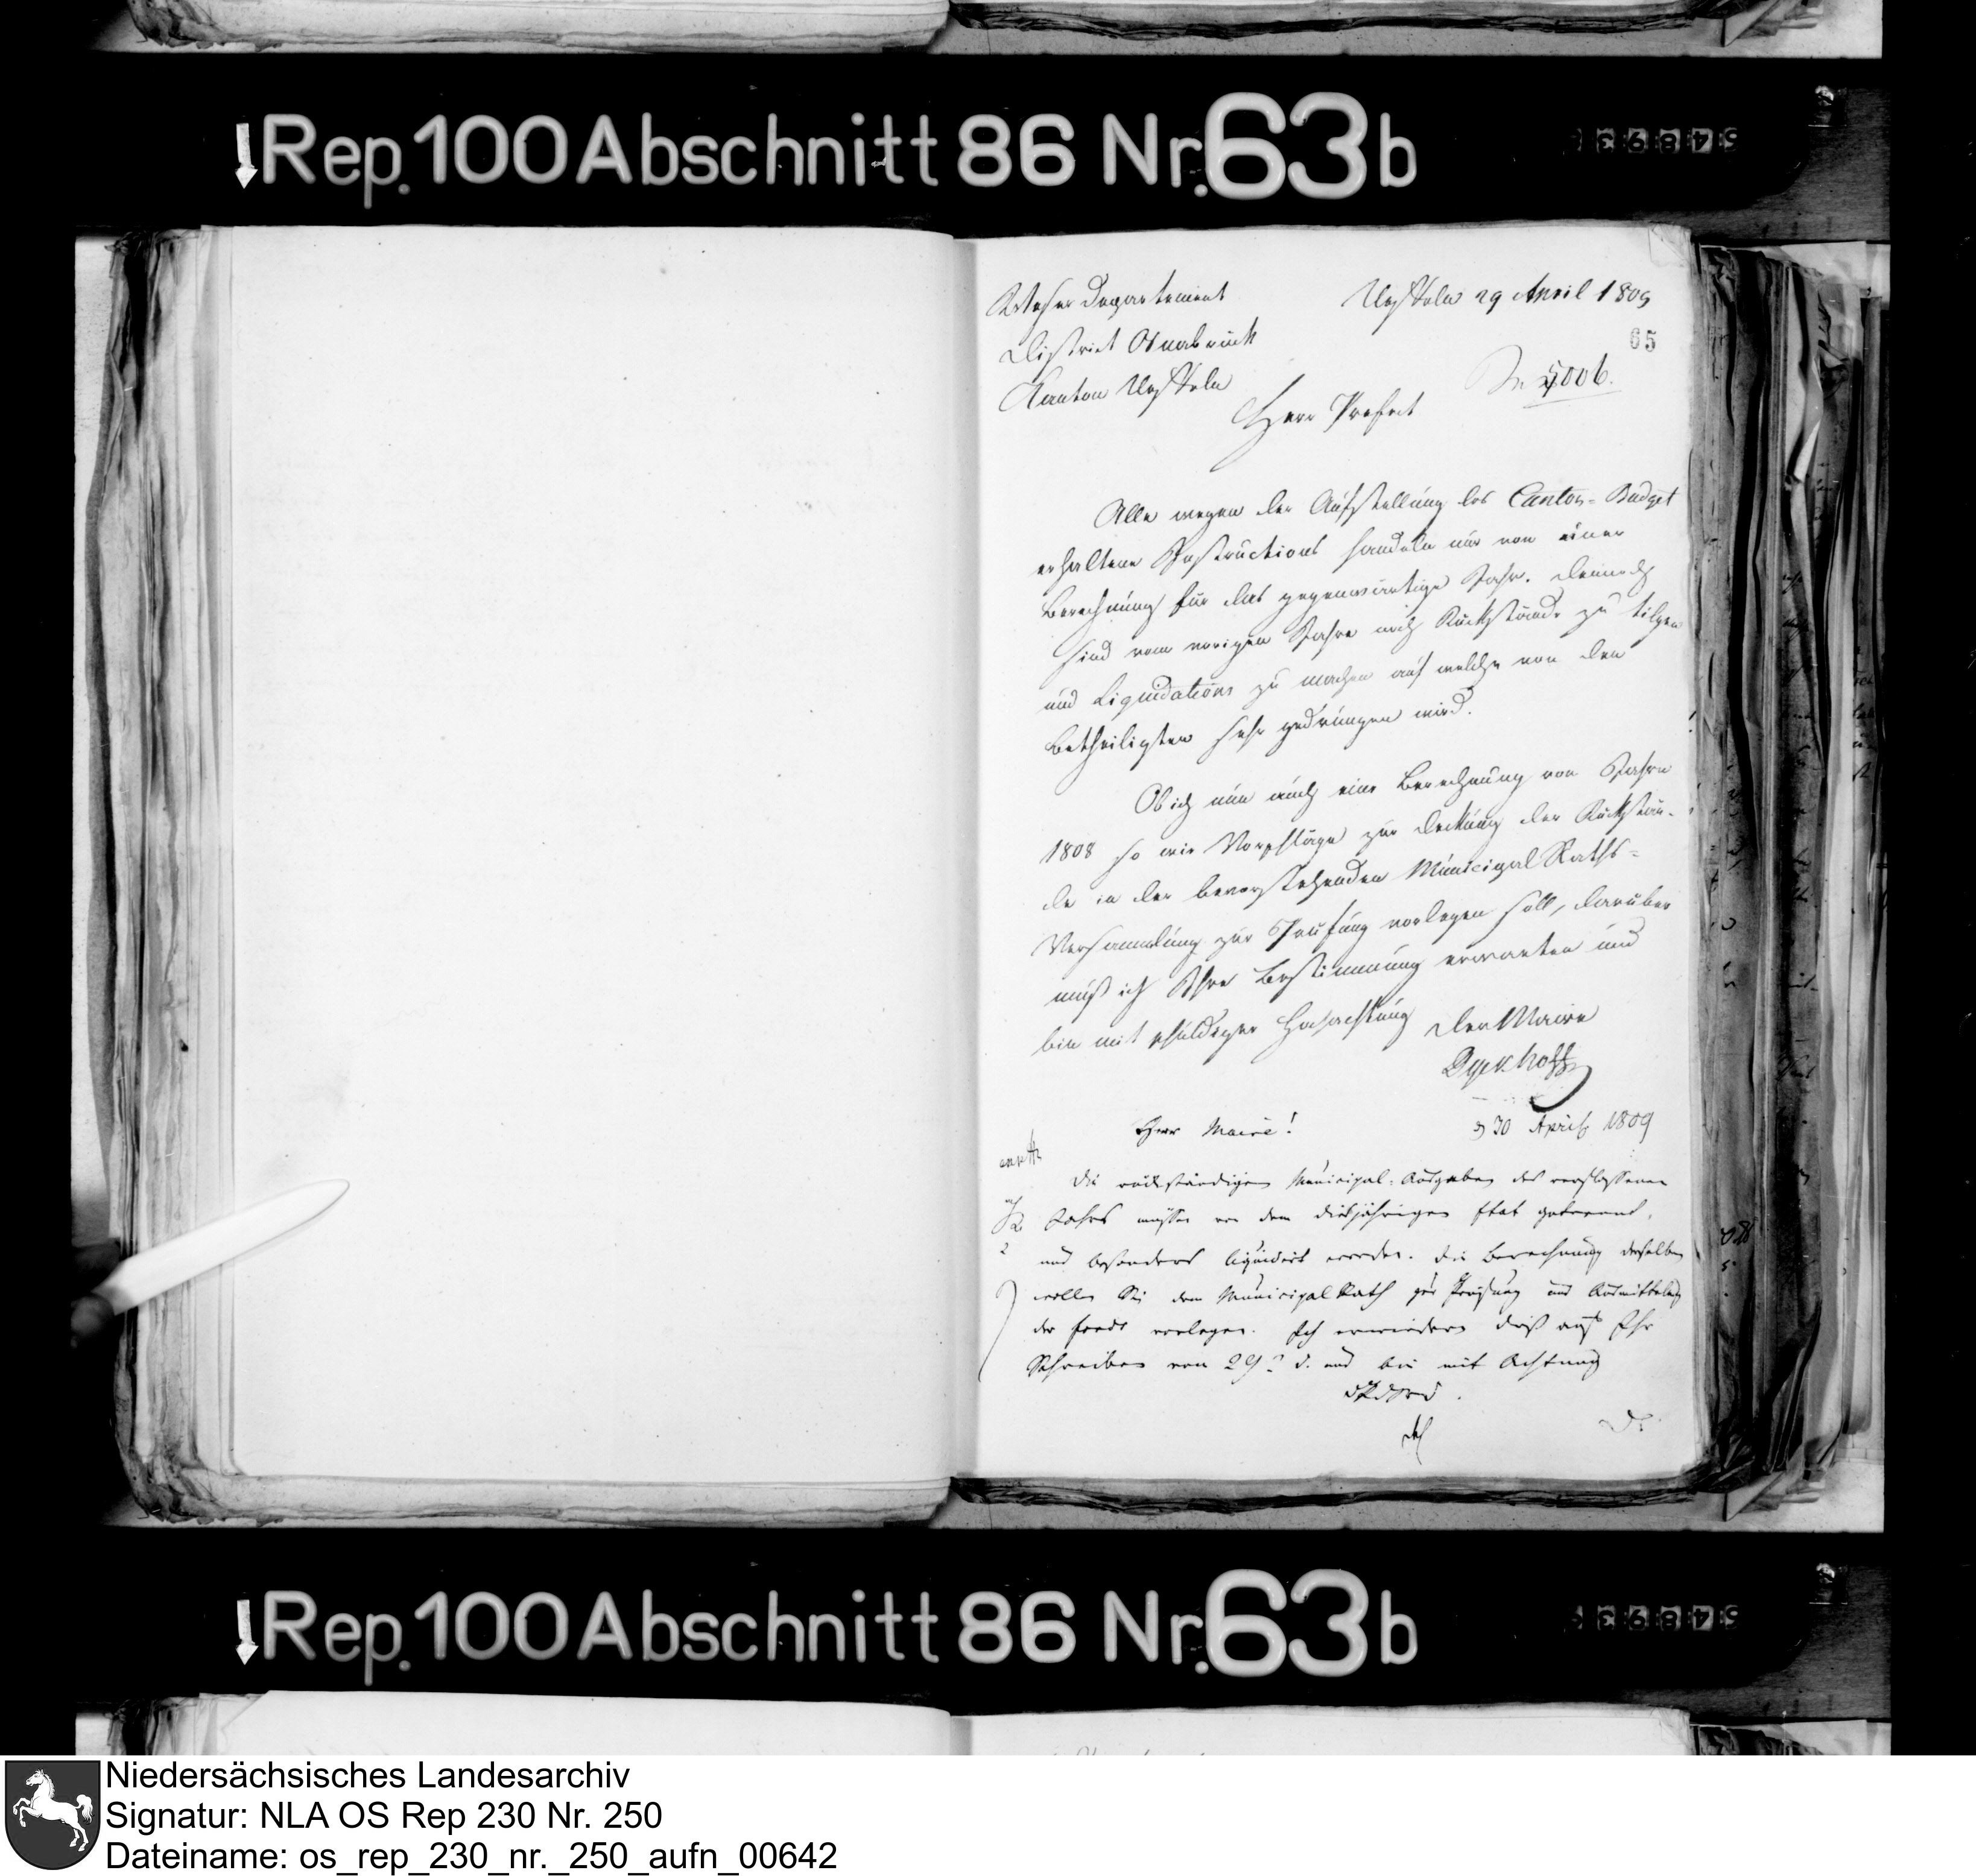 Rep. 100 Abschnitt 86 Nr. 63b
Weser Departement
Ueffeln 29 April 1809
District Osnabrück
65
Kanton Ueffeln
5006.
Herr Prefect
Alle wegen der Aufstellung des Canton-Budget
erhaltene Instructions handeln nur von einer
Berechnung für das gegenwärtige Jahr. Dennoch
sind vom vorigen Jahre noch Rückstände zu tilgen
und Liquidations zu machen auf welche von den
Betheiligten sehr gedrungen wird.
Ob ich nun auch eine Berechnung von Jahre
1808 so wie Vorschläge zur Deckung der Rückstän-
de in der bevorstehenden Municipal Raths-
Versammlung zur Prüfung vorlegen soll, darüber
muß ich Ihre Bestimmung erwarten und
bin mit schuldiger Hochachtung Der Maire
Dyckhoff
Herr Maire!
30 April 1809
Die rückständigen Municipal-Ausgaben des verflossenen
Jahrs müssen von dem diesjährigen Etat getrennt,
und besonders liquidirt werden. Die Berechnung derselben
wollen Sie dem Municipal Rath zur Prüfung und Ausmittelung
der Fonds vorlegen. Ich erwiedere dieß auf Ihr
Schreiben vom 29 d. und bin mit Achtung
Rep. 100 Abschnitt 86 Nr. 63b
Niedersächsisches Landesarchiv
Signatur: NLA OS Rep 230 Nr. 250
Dateiname: os_rep_230_nr._250_aufn_00642